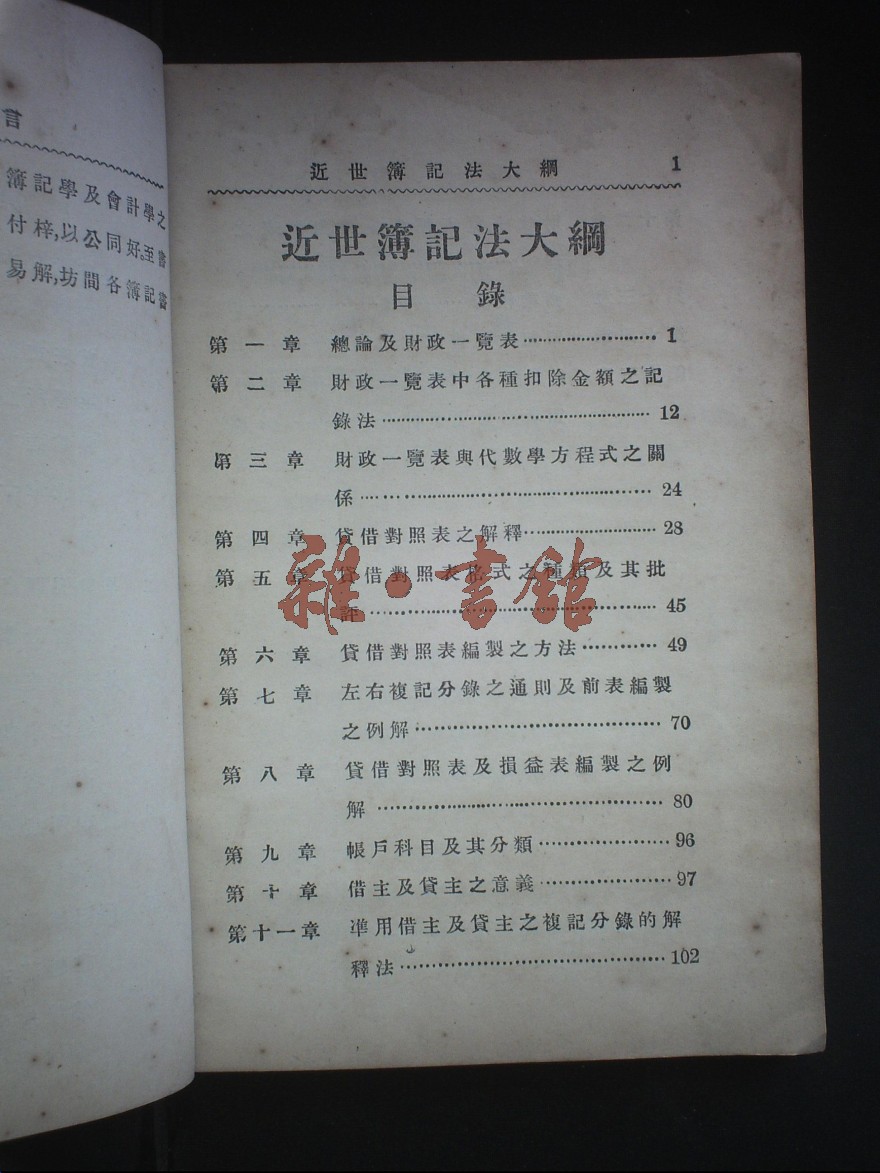 言
簿記學及會計學之
付梓,以公同好。至書
易解,坊間各簿記書
近世簿記法大綱 1
近世簿記法大綱
目錄
第一章 總論及財政一覽表………………………1
第二章 財政一覽表中各種扣除金額之記
錄法………………………12
第三章 財政一覽表與代數學方程式之關
係………………………24
第四章 貸借對照表之解釋………………………28
第五章 貸借對照表格式之種類及其批
評………………………45
第六章 貸借對照表編製之方法…………49
第七章 左右複記分錄之通則及前表編製
之例解………………………70
第八章 貸借對照表及損益表編製之例
解………………………80
第九章 帳戶科目及其分類………………96
第十章 借主及貸主之意義………………97
第十一章 準用借主及貸主之複記分錄的解
釋法………………………102
雜·書館